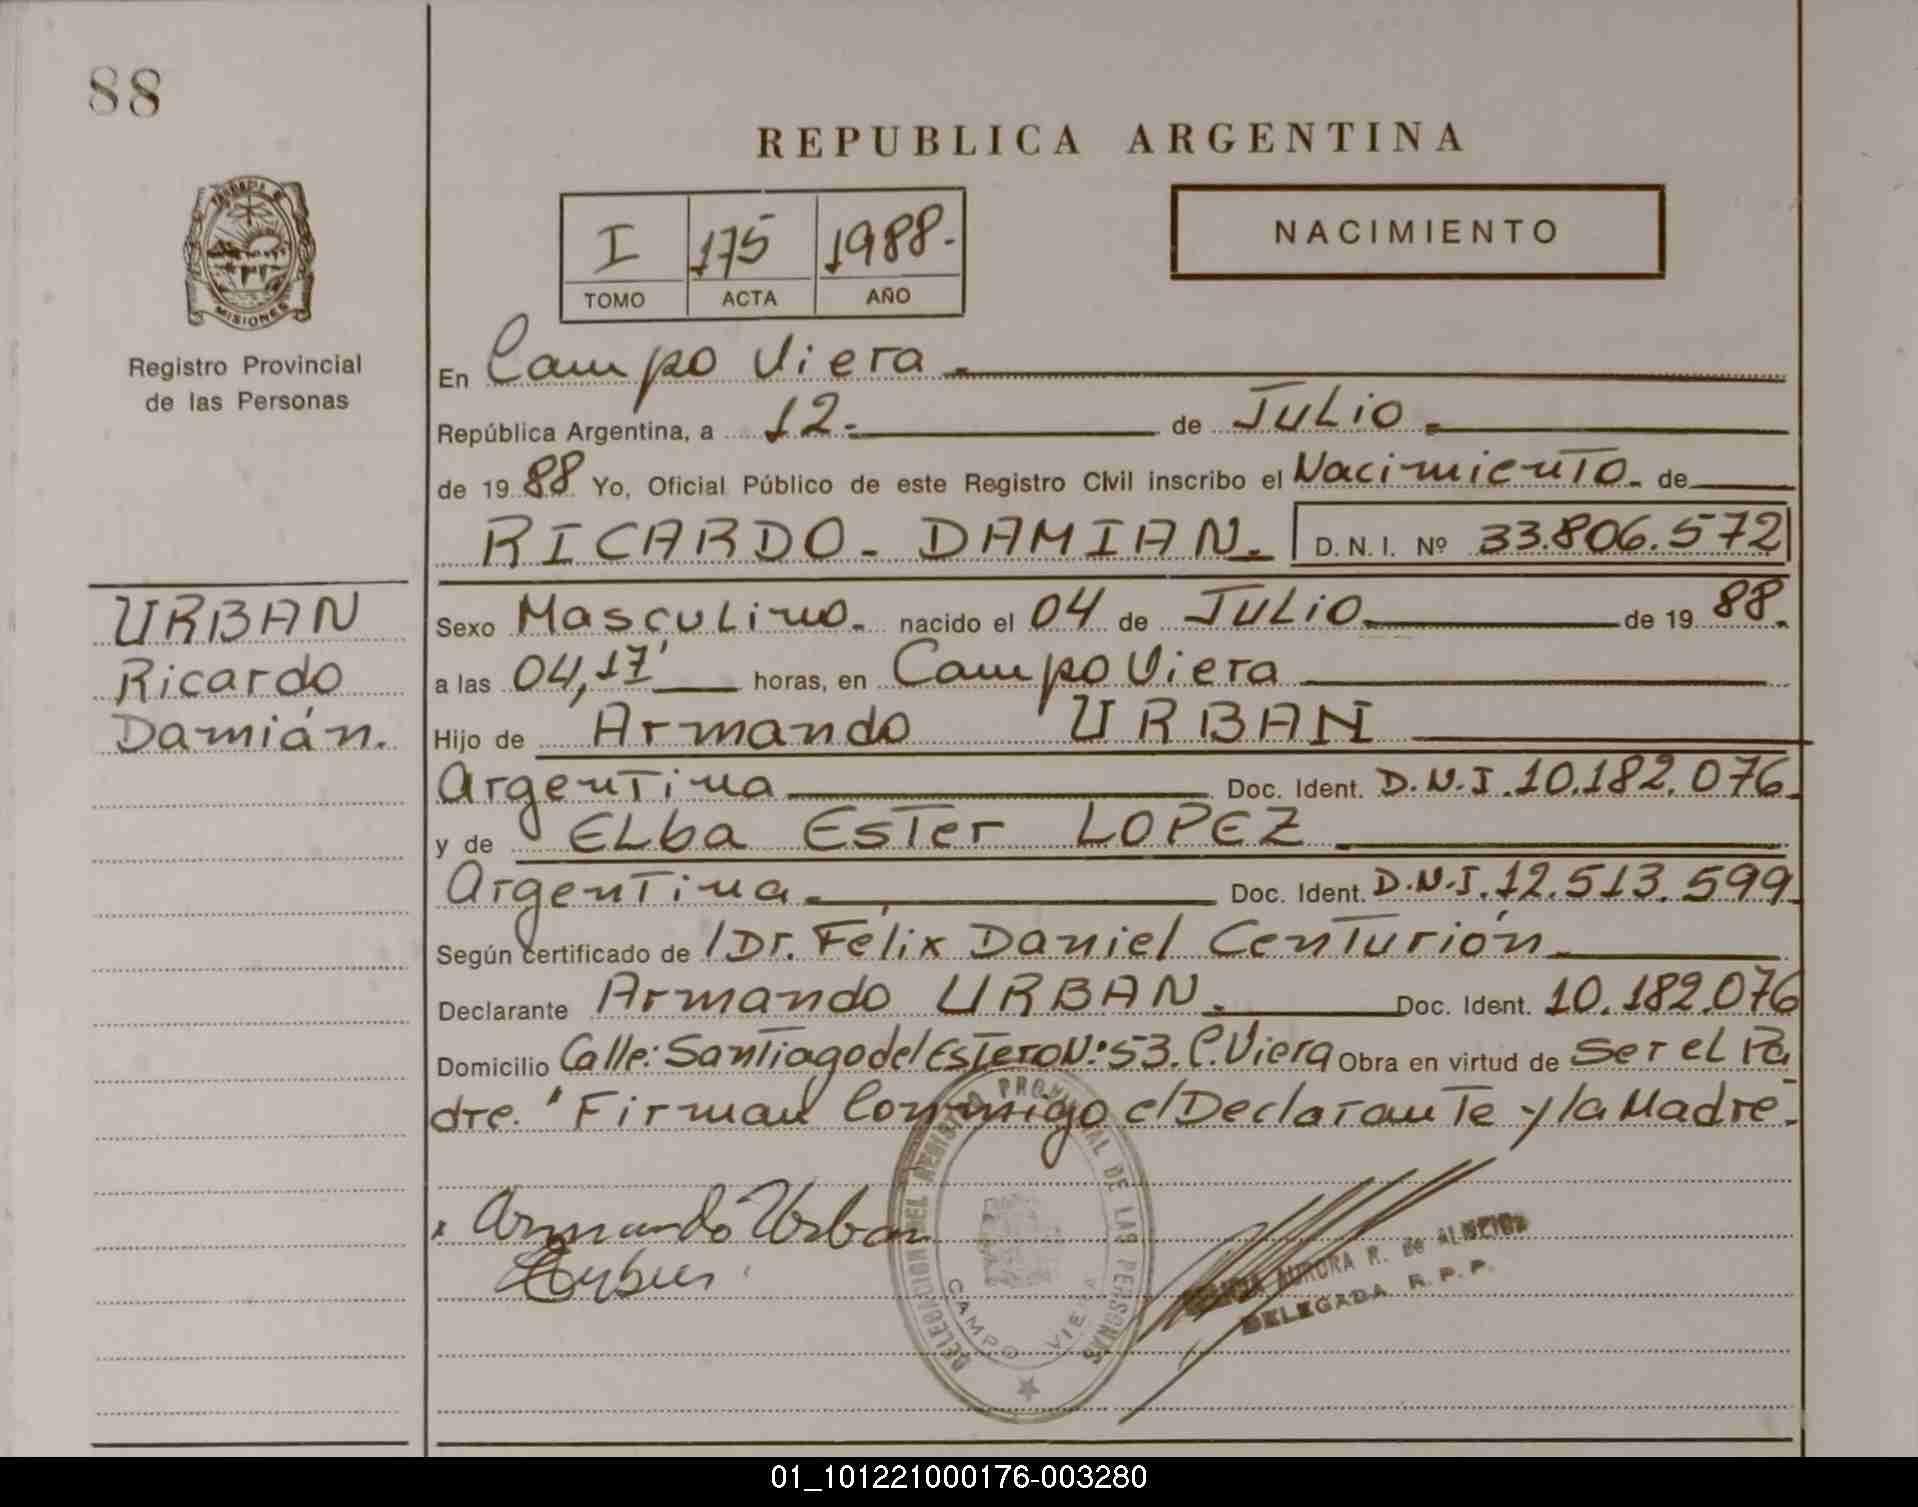 88
PROVINCIA DE
MISIONES
Registro Provincial
de las Personas
URBAN
Ricardo
Damián.
REPUBLICA ARGENTINA
I 175 1988.
TOMO ACTA AÑO
NACIMIENTO
En Campo Viera
República Argentina, a 12. de JULio
de 19 88 Yo, Oficial Público de este Registro Civil inscribo el Nacimiento de
RICARDO DAMIAN. D. N. I. Nº 33.806.572
Sexo Masculino. nacido el 04 de JULio de 19 88.
a las 04,17' horas, en Campo Viera
Hijo de Armando URBAN
Argentina Doc. Ident. D.N.I. 10.182.076
y de ELba Ester LOPEZ
Argentina Doc. Ident. D.N.I. 12.513.599
Según certificado de / Dr. Félix Daniel Centurión
Declarante Armando URBAN. Doc. Ident. 10.182.076
Domicilio Calle: Santiago del Estero N.º 53. C. Viera Obra en virtud de ser el Pa
dre. "Firman Conmigo el Declarante y la Madre.
Armando Urban
DELEGACION DEL REGISTRO PROVINCIAL DE LAS PERSONAS
CAMPO VIERA
AURORA R. de ALMEIDA
DELEGADA R. P. P.
01_101221000176-003280